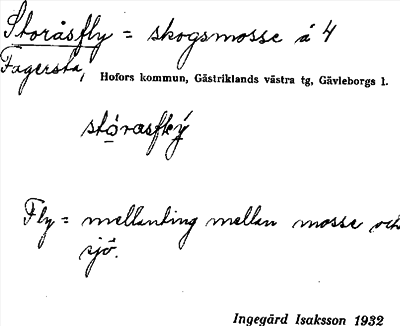 Storåsfly = skogsmosse å 4
Fagersta,
Hofors kommun, Gästriklands västra tg, Gävleborgs l.
stórasflý
Fly = mellanting mellan mosse och
sjö.
Ingegärd Isaksson 1932